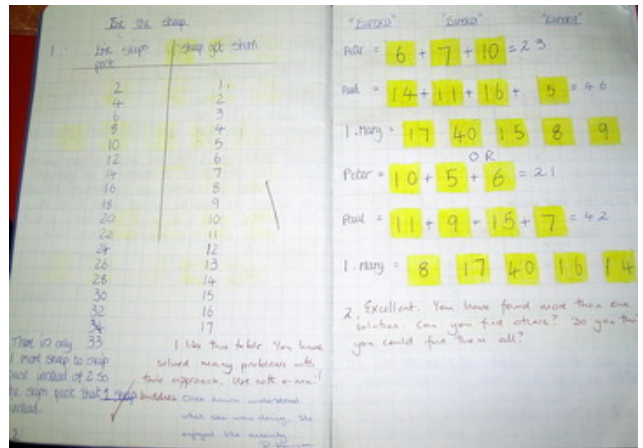 the sheep
1. skips sheep get shorn
past
2 1
4 2
6 3
8 4
10 5
12 6
14 7
16 8
18 9
20 10
22 11
24 12
26 13
28 14
30 15
32 16
34 17
There is only 33
1 more sheep to skip
past instead of 2 so
skips past that 1 sheep
instead.
I like this table. You have
solved many problems with
this approach. Use with e-mail
buddies
Once understood
what she was doing, she
enjoyed the activity
2
"Eureka" "Eureka" "Eureka"
Peter = 6 + 7 + 10 = 23
Paul = 14 + 11 + 16 + 5 = 46
1. Mary = 17 40 15 8 9
OR
Peter = 10 + 5 + 6 = 21
Paul = 11 + 9 + 15 + 7 = 42
1. Mary = 8 17 40 16 14
2. Excellent. You have found more than one
solution. Can you find others? Do you think
you could find them all?